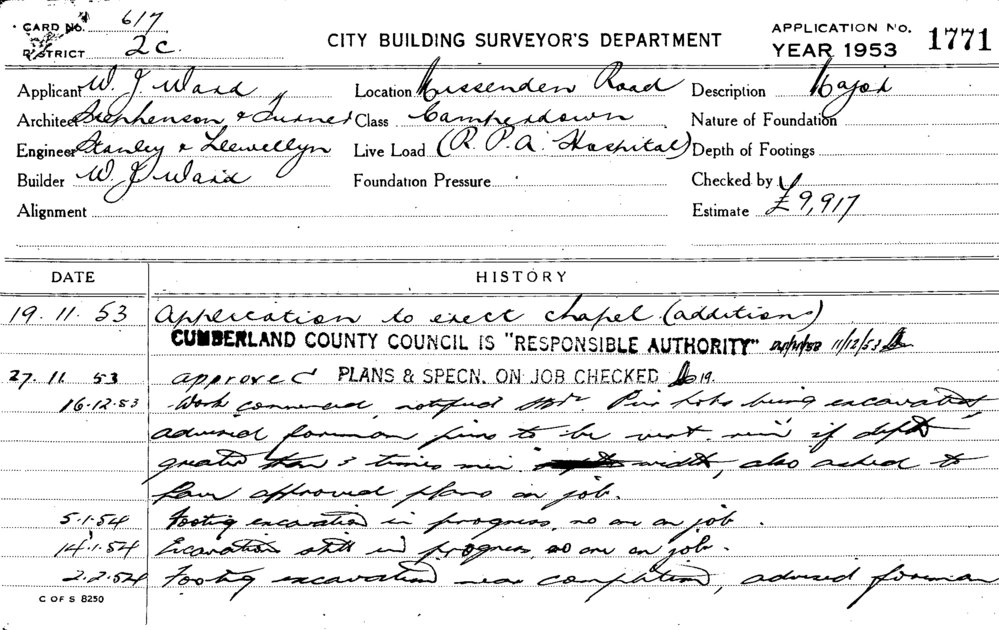 CARD No. 617
DISTRICT 2c.
CITY BUILDING SURVEYOR'S DEPARTMENT
APPLICATION No. 1771
YEAR 1953
Applicant W. J. Ward
Location Missenden Road
Description Major
Architect Stephenson & Turner
Class Camperdown
Nature of Foundation
Engineer Stanley & Llewellyn
Live Load (R.P.A. Hospital)
Depth of Footings
Builder W. J. Ward
Foundation Pressure
Checked by
Alignment
Estimate £9,917
DATE HISTORY
19.11.53 Application to erect chapel (additions)
CUMBERLAND COUNTY COUNCIL IS "RESPONSIBLE AUTHORITY" 11/12/53
27.11.53 approved PLANS & SPECN. ON JOB CHECKED
16.12.53 Work commenced, notified Pier holes being excavated
advised foreman piers to be reinf if depth
greater than 3 times min width, also asked to
have approved plans on job.
5.1.54 Footing excavation in progress, no one on job.
14.1.54 Excavation still in progress, no one on job.
2.2.54 Footing excavation near completion, advised foreman
C OF S 8250